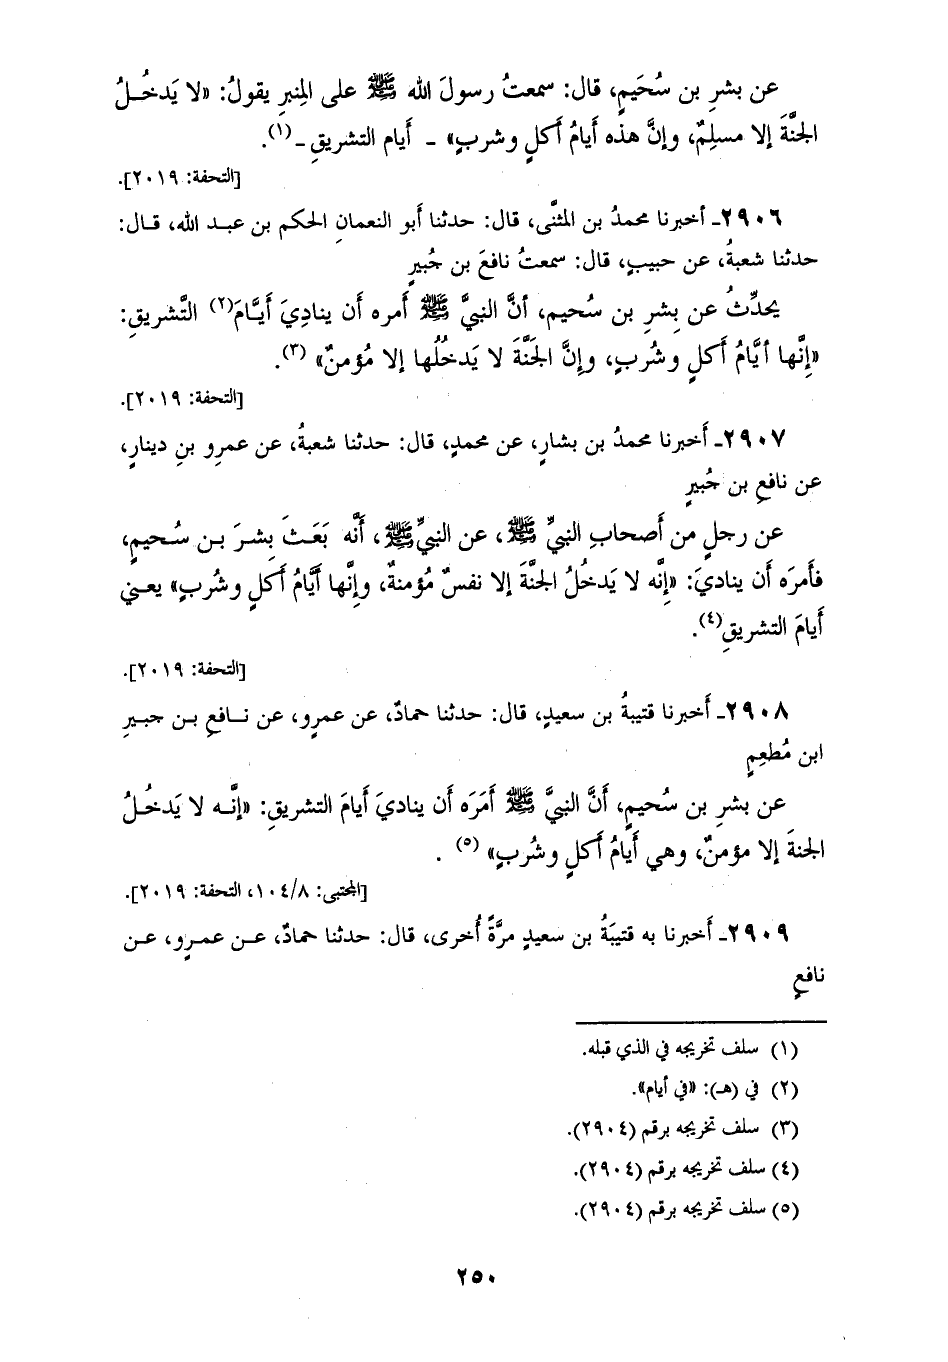 عن بشرِ بن سُحَيمٍ، قال: سمعتُ رسولَ الله ﷺ على المِنبرِ يقولُ: «لا يَدخُـلُ
الجنَّةَ إلا مسلِمٌ، وإنَّ هذه أيامُ أكلٍ وشربٍ» ـ أيام التشريقِ ـ(١).
[التحفة: ٢٠١٩].
٢٩٠٦ـ أخبرنا محمدُ بن المثنَّى، قال: حدثنا أبو النعمانِ الحكم بن عبـد الله، قـال:
حدثنا شعبةُ، عن حبيبٍ، قال: سمعتُ نافعَ بن جُبيرٍ
يحدِّثُ عن بِشرِ بن سُحيم، أنَّ النبيَّ ﷺ أمره أن ينادِيَ أيَّـامَ(٢) التَّشريقِ:
«إِنَّها أيَّامُ أكلٍ وشُربٍ، وإِنَّ الجَنَّةَ لا يَدخُلُها إلا مُؤمنٌ» (٣).
[التحفة: ٢٠١٩].
٢٩٠٧ـ أخبرنا محمدُ بن بشارٍ، عن محمدٍ، قال: حدثنا شعبةُ، عن عمرِو بنِ دينارٍ،
عن نافعِ بن جُبيرٍ
عن رجلٍ من أصحابِ النبيِّ ﷺ، عن النبيِّ ﷺ، أنَّه بَعَـثَ بِشـرَ بـن سُـحيمٍ،
فأمرَه أن يناديَ: «إِنَّه لا يَدخُلُ الجنَّةَ إلا نفسٌ مُؤمنةٌ، وإِنَّها أيَّامُ أكلٍ وشُربٍ» يعـني
أيامَ التشريقِ(٤).
[التحفة: ٢٠١٩].
٢٩٠٨ـ أخبرنا قتيبةُ بن سعيدٍ، قال: حدثنا حمادٌ، عن عمرٍو، عن نـافعِ بـن جبـيرِ
ابن مُطعِمٍ
عن بشرِ بن سُحيمٍ، أنَّ النبيَّ ﷺ أمَرَه أن يناديَ أيامَ التشريقِ: «إنَّـه لا يَدخُـلُ
الجنةَ إلا مؤمنٌ، وهي أيامُ أكلٍ وشُربٍ» (٥) .
[المجتبى: ١٠٤/٨، التحفة: ٢٠١٩].
٢٩٠٩ـ أخبرنا به قتيبَةُ بن سعيدٍ مرَّةً أُخرى، قال: حدثنا حمادٌ، عـن عمـرٍو، عـن
نافعٍ
(١) سلف تخريجه في الذي قبله.
(٢) في (هـ): «في أيام».
(٣) سلف تخريجه برقم (٢٩٠٤).
(٤) سلف تخريجه برقم (٢٩٠٤).
(٥) سلف تخريجه برقم (٢٩٠٤).
٢٥٠